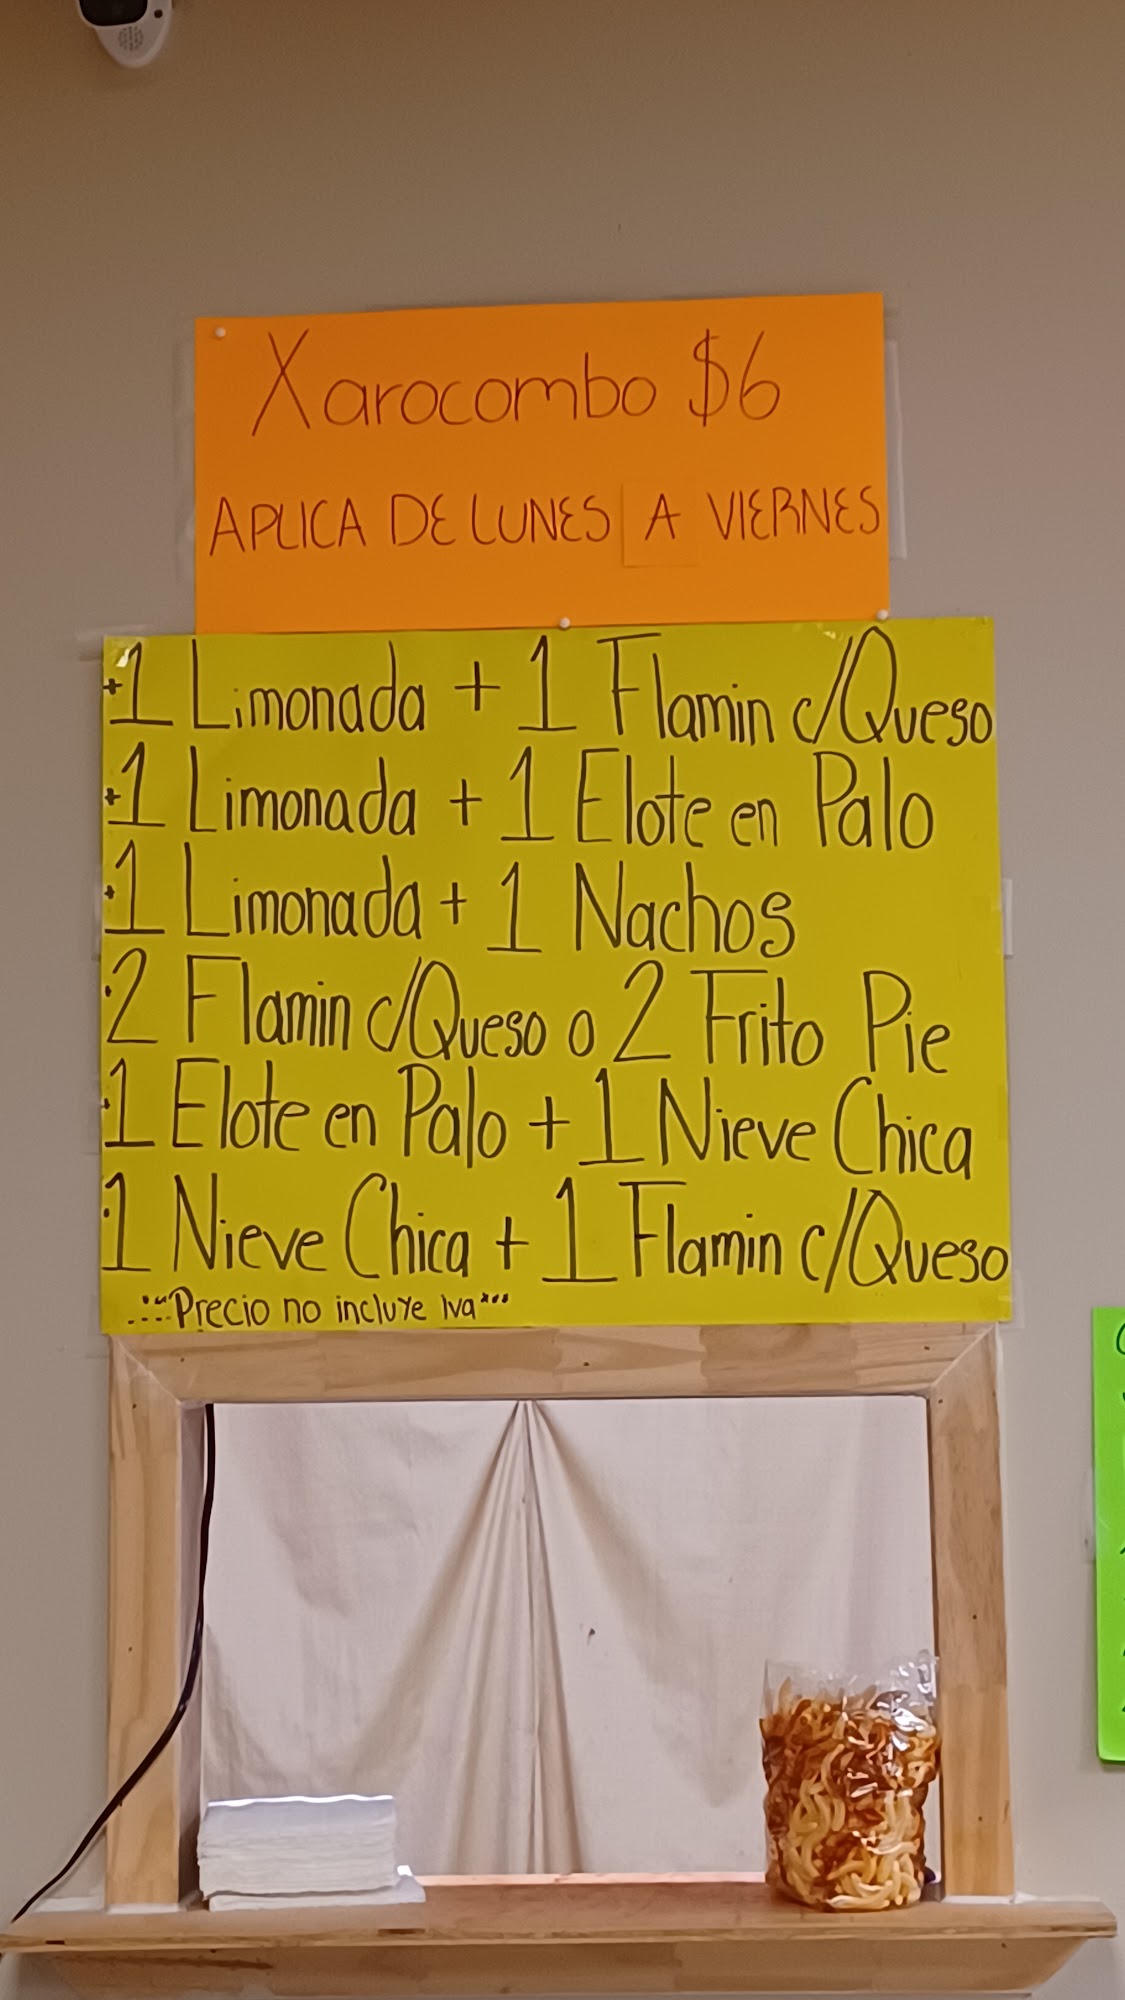 Xarocombo $6
APLICA DE LUNES A VIERNES
+1 Limonada + 1 Flamin c/Queso
+1 Limonada + 1 Elote en Palo
+1 Limonada + 1 Nachos
·2 Flamin c/Queso o 2 Frito Pie
·1 Elote en Palo + 1 Nieve Chica
·1 Nieve Chica + 1 Flamin c/Queso
Precio no incluye Iva